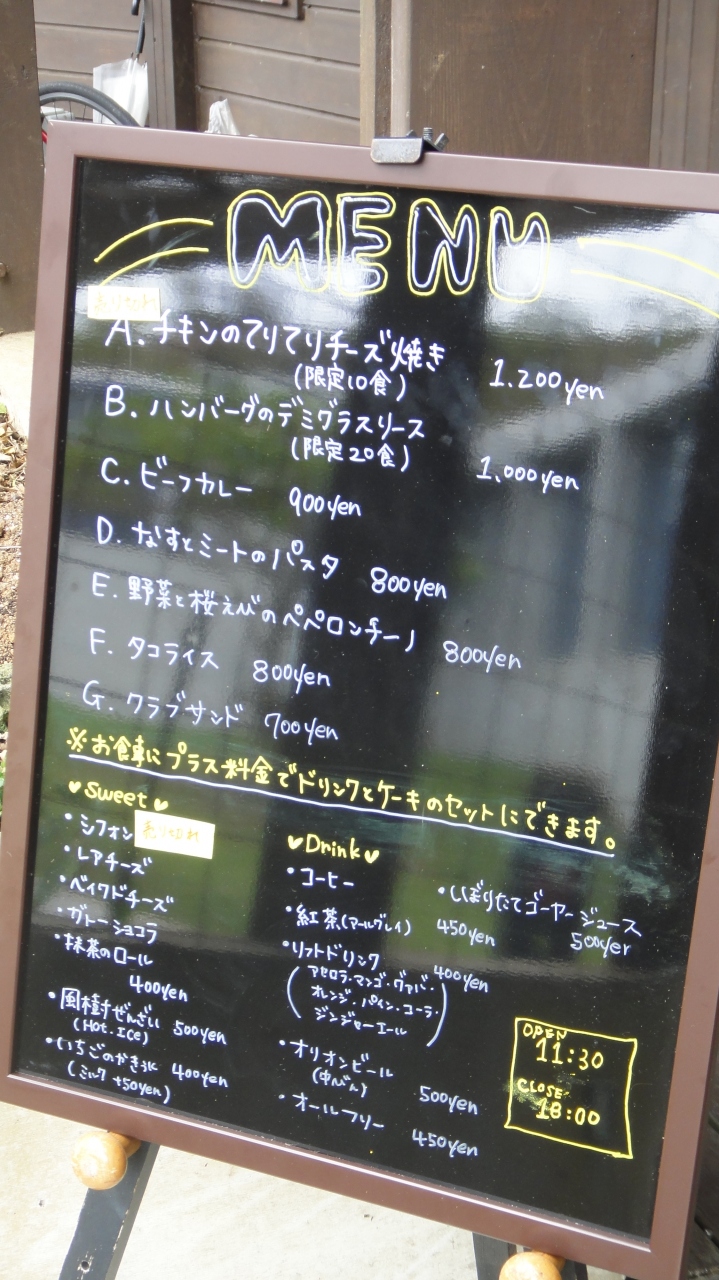 MENU
売り切れ
A. チキンのてりてりチーズ焼き
(限定10食) 1.200yen
B. ハンバーグのデミグラスソース
(限定20食) 1,000yen
C. ビーフカレー 900yen
D. なすとミートのパスタ 800yen
E. 野菜と桜えびのペペロンチーノ 800yen
F. タコライス 800yen
G. クラブサンド 700yen
※お食事にプラス料金でドリンクとケーキのセットにできます。
♥sweet♥
・シフォン 売り切れ
・レアチーズ
・ベイクドチーズ
・ガトーショコラ
・抹茶のロール
400yen
・風樹ぜんざい 500yen
(Hot. Ice)
・いちごのかき氷 400yen
(ミルク +50yen)
♥Drink♥
・コーヒー
・紅茶(アールグレイ) 450yen
・ソフトドリンク 400yen
(アセロラ・マンゴ・グァバ・
オレンジ・パイン・コーラ・
ジンジャーエール)
・オリオンビール
(中びん) 500yen
・オールフリー 450yen
・しぼりたてゴーヤージュース
500yen
OPEN
11:30
CLOSE
18:00